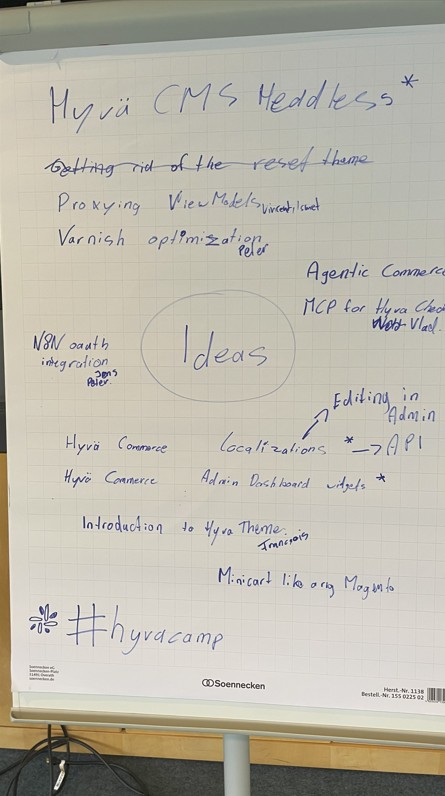 Hyvä CMS Headless *
Getting rid of the reset theme
Proxying ViewModels
Varnish optimization
Peter
Agentic Commerc
MCP for Hyva Chec
Vlad.
N8N oauth
integration
Jens
Peter.
Ideas
Editing in
Admin
Hyvä Commerce Localizations * → API
Hyvä Commerce Admin Dashboard widgets *
Introduction to Hyva Theme.
Francois
Minicart like orig Magento
#hyvacamp
Soennecken eG
Soennecken-Platz
51491 Overath
soennecken.de
Soennecken
Herst.-Nr. 1138
Bestell.-Nr. 155 0225 02